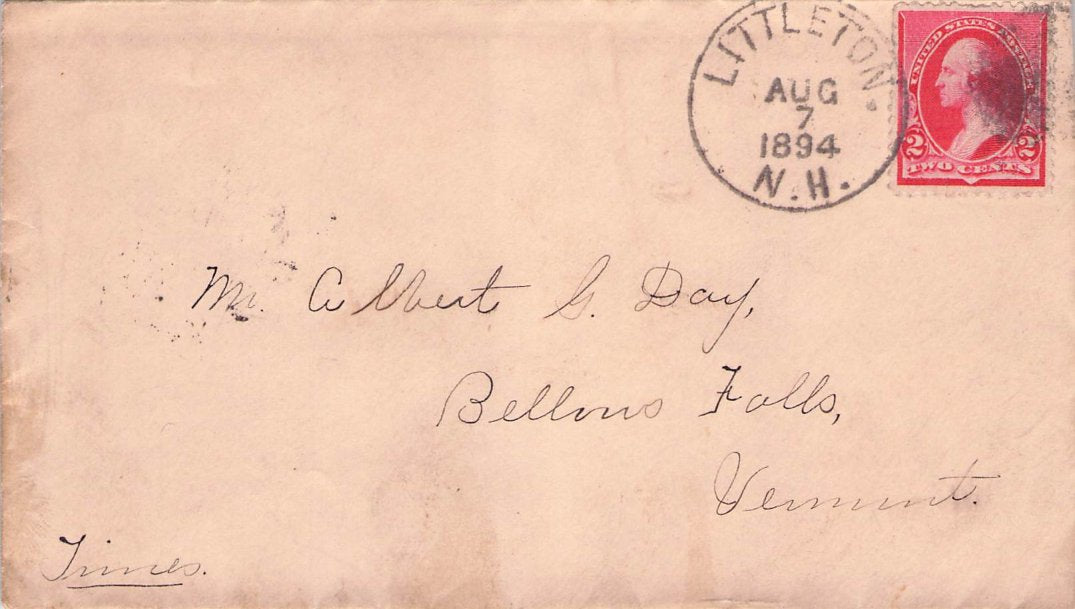 LITTLETON.
AUG
7
1894
N.H.
UNITED STATES POSTAGE
2 2
TWO CENTS
Mr. Albert G. Day,
Bellows Falls,
Vermont.
Times.